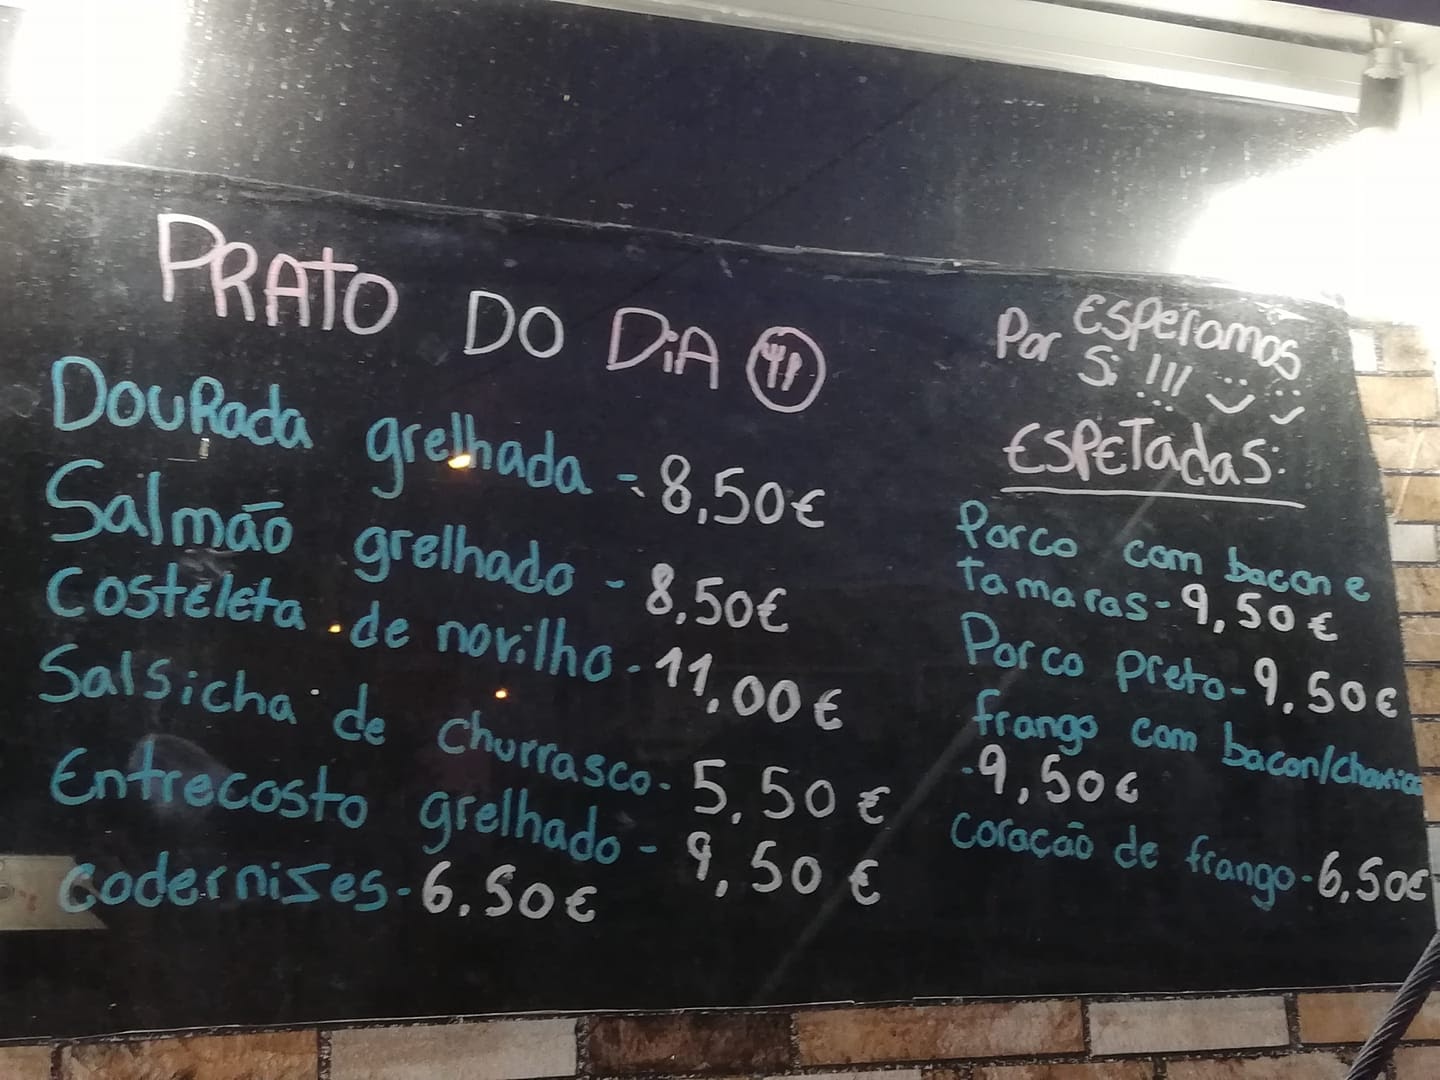 PRATO DO DiA
DouRada grelhada - 8,50€
Salmão grelhado - 8,50€
Costeleta de novilho - 11,00€
Salsicha de churrasco - 5,50€
Entrecosto grelhado - 9,50€
codernizes - 6,50€
ESPERAMOS
Por Si !!!
ESPETadas:
Porco com bacon e
tamaras - 9,50€
Porco preto - 9,50€
frango com bacon/chouriço
- 9,50€
coração de frango - 6,50€